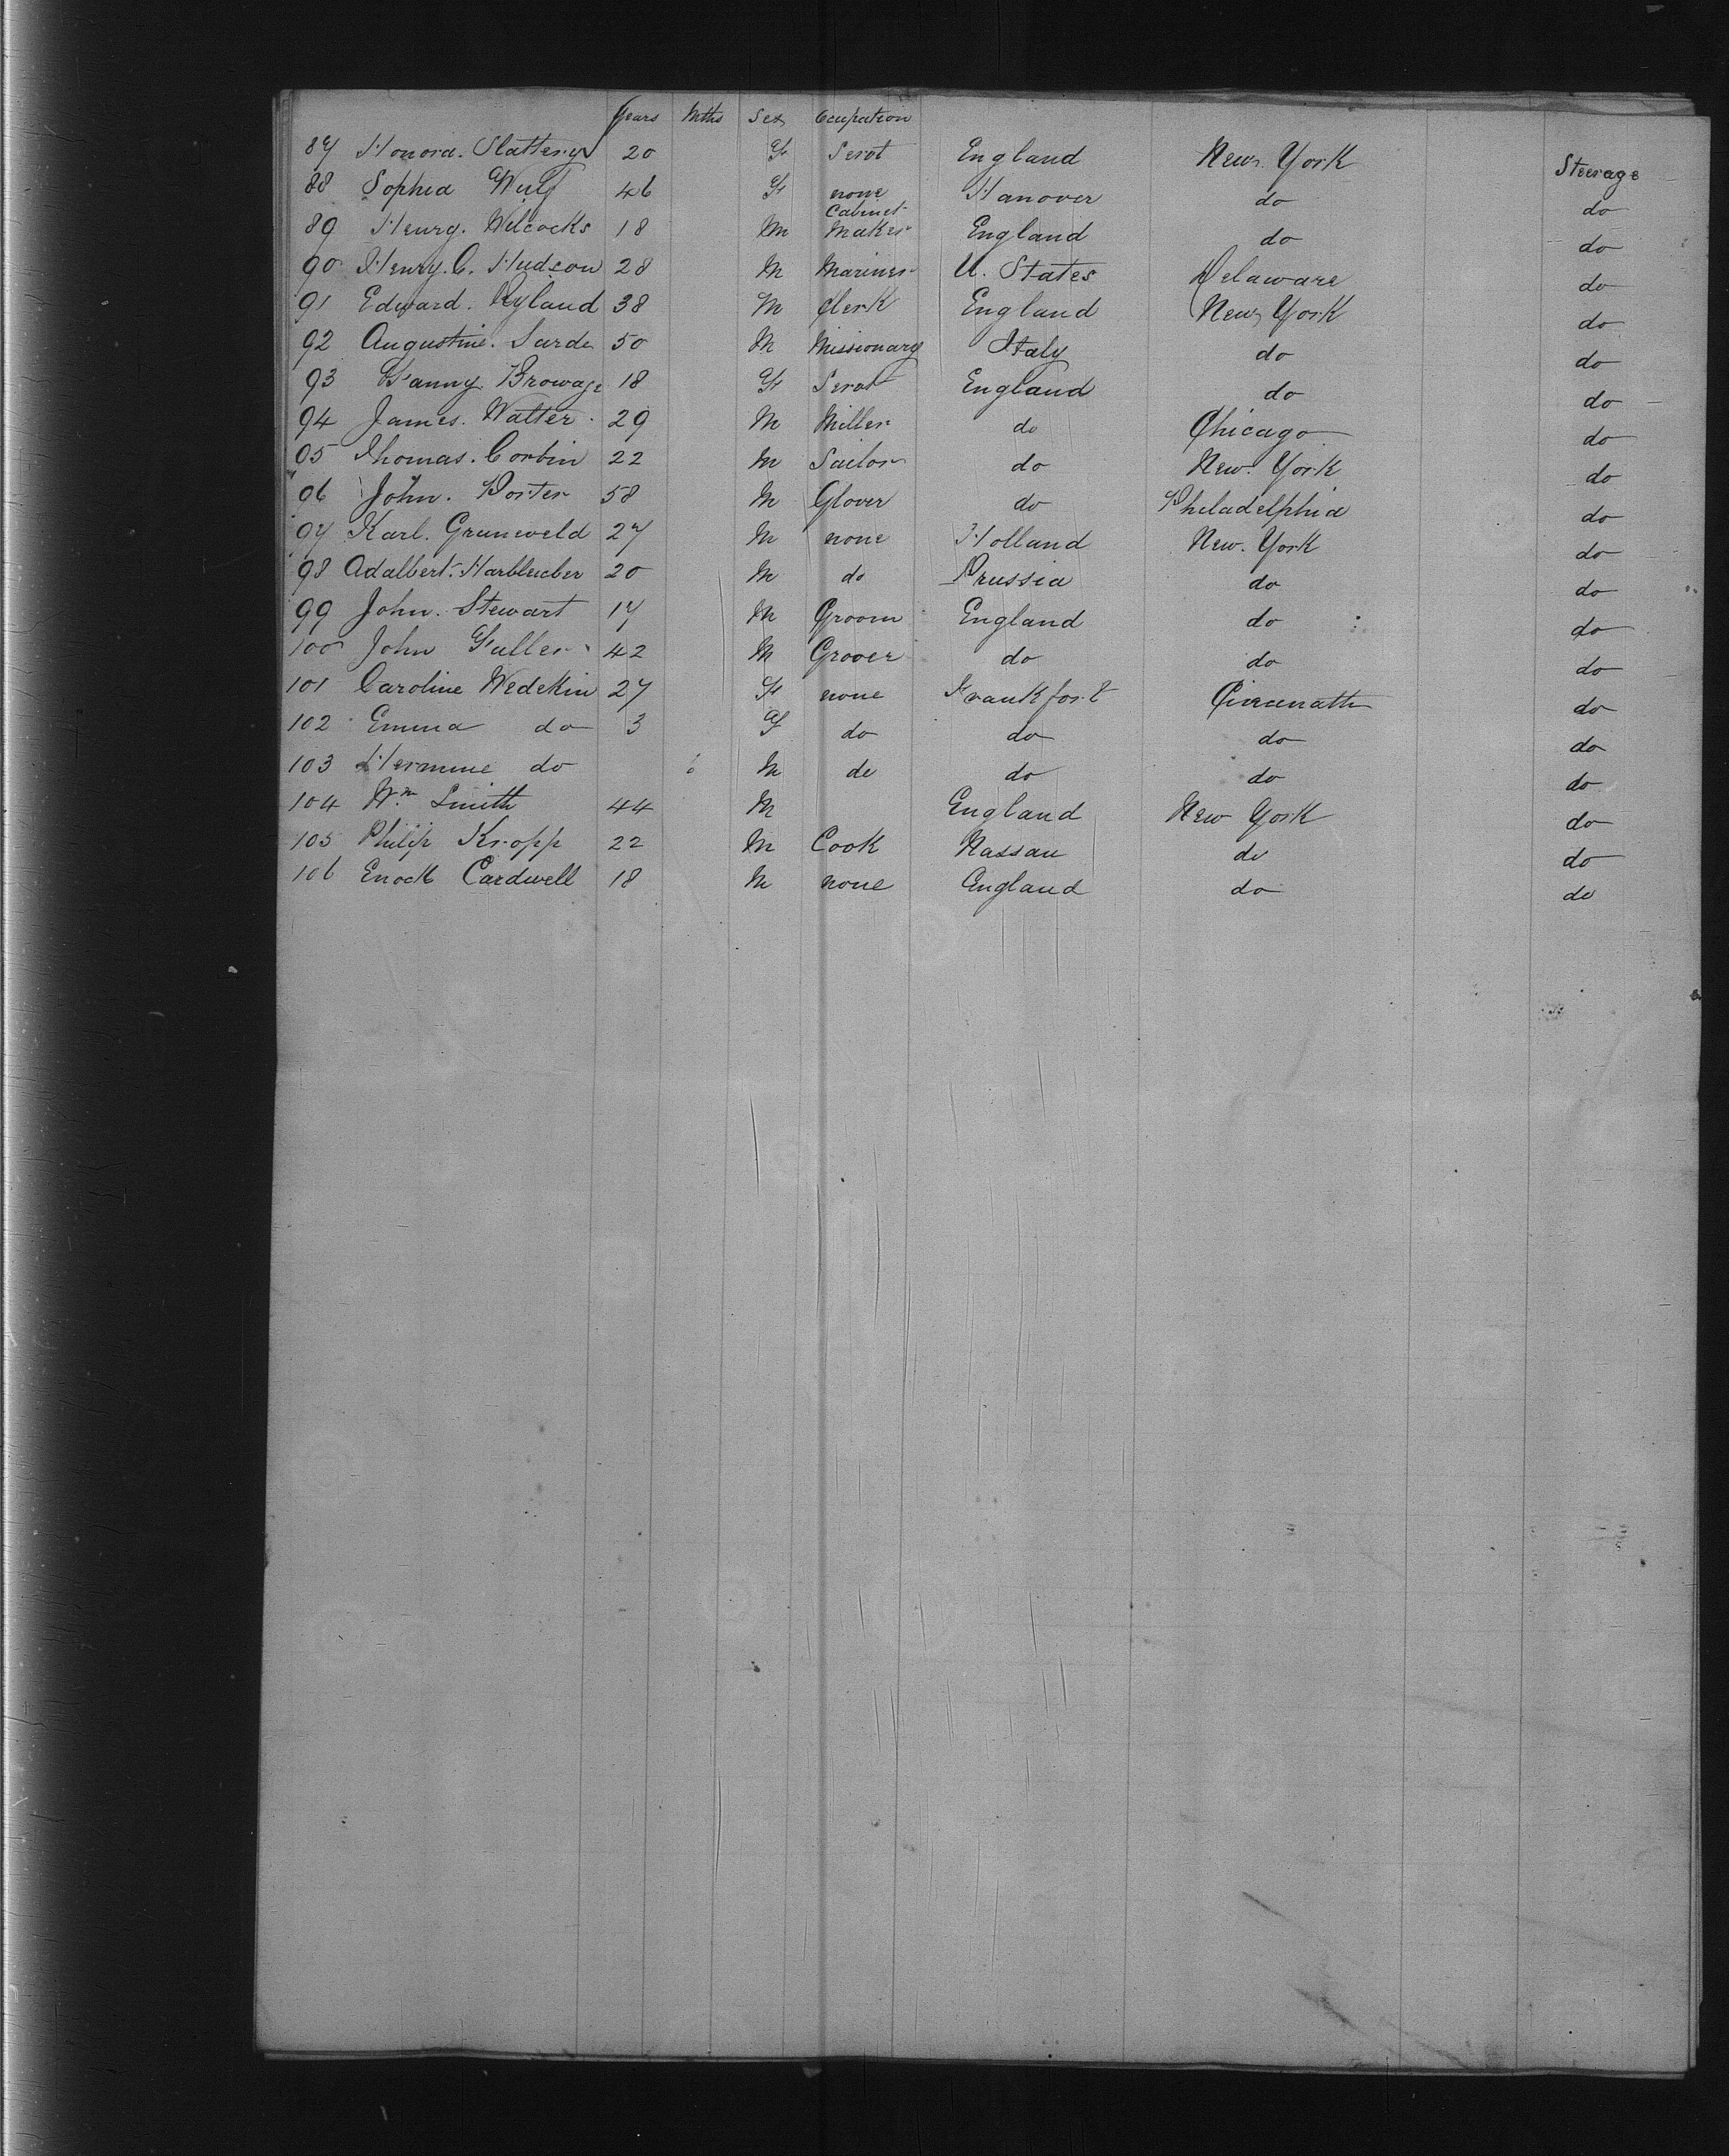 Years Mths Sex Ocupation
87 Honora. Slattery 20 F Servt England New York Steerage
88 Sophia Wulf 46 F none Hanover do do
89 Henry. Wilcocks 18 M Cabinet Maker England do do
90 Henry. C. Hudson 28 M Mariner U. States Delaware do
91 Edward. Ryland 38 M Clerk England New York do
92 Augustine. Sarde 50 M Missionary Italy do do
93 Fanny. Browage 18 F Servt England do do
94 James. Watter. 29 M Miller do Chicago do
95 Thomas. Corbin 22 M Sailor do New. York do
96 John. Porter 58 M Glover do Philadelphia do
97 Karl. Gruneveld 27 M none Holland New. York do
98 Adalbert. 20 M do Prussia do do
99 John. Stewart 17 M Groom England do do
100 John Fuller 42 M do do do
101 Caroline Wedekin 27 F none Frankfort do
102 Emma do 3 F do do do do
103 Hermine do M do do do do
104 Wm Smith 44 M England New York do
105 Philip Kropp 22 M Cook Nassau do do
106 Enoch Cardwell 18 M none England do do